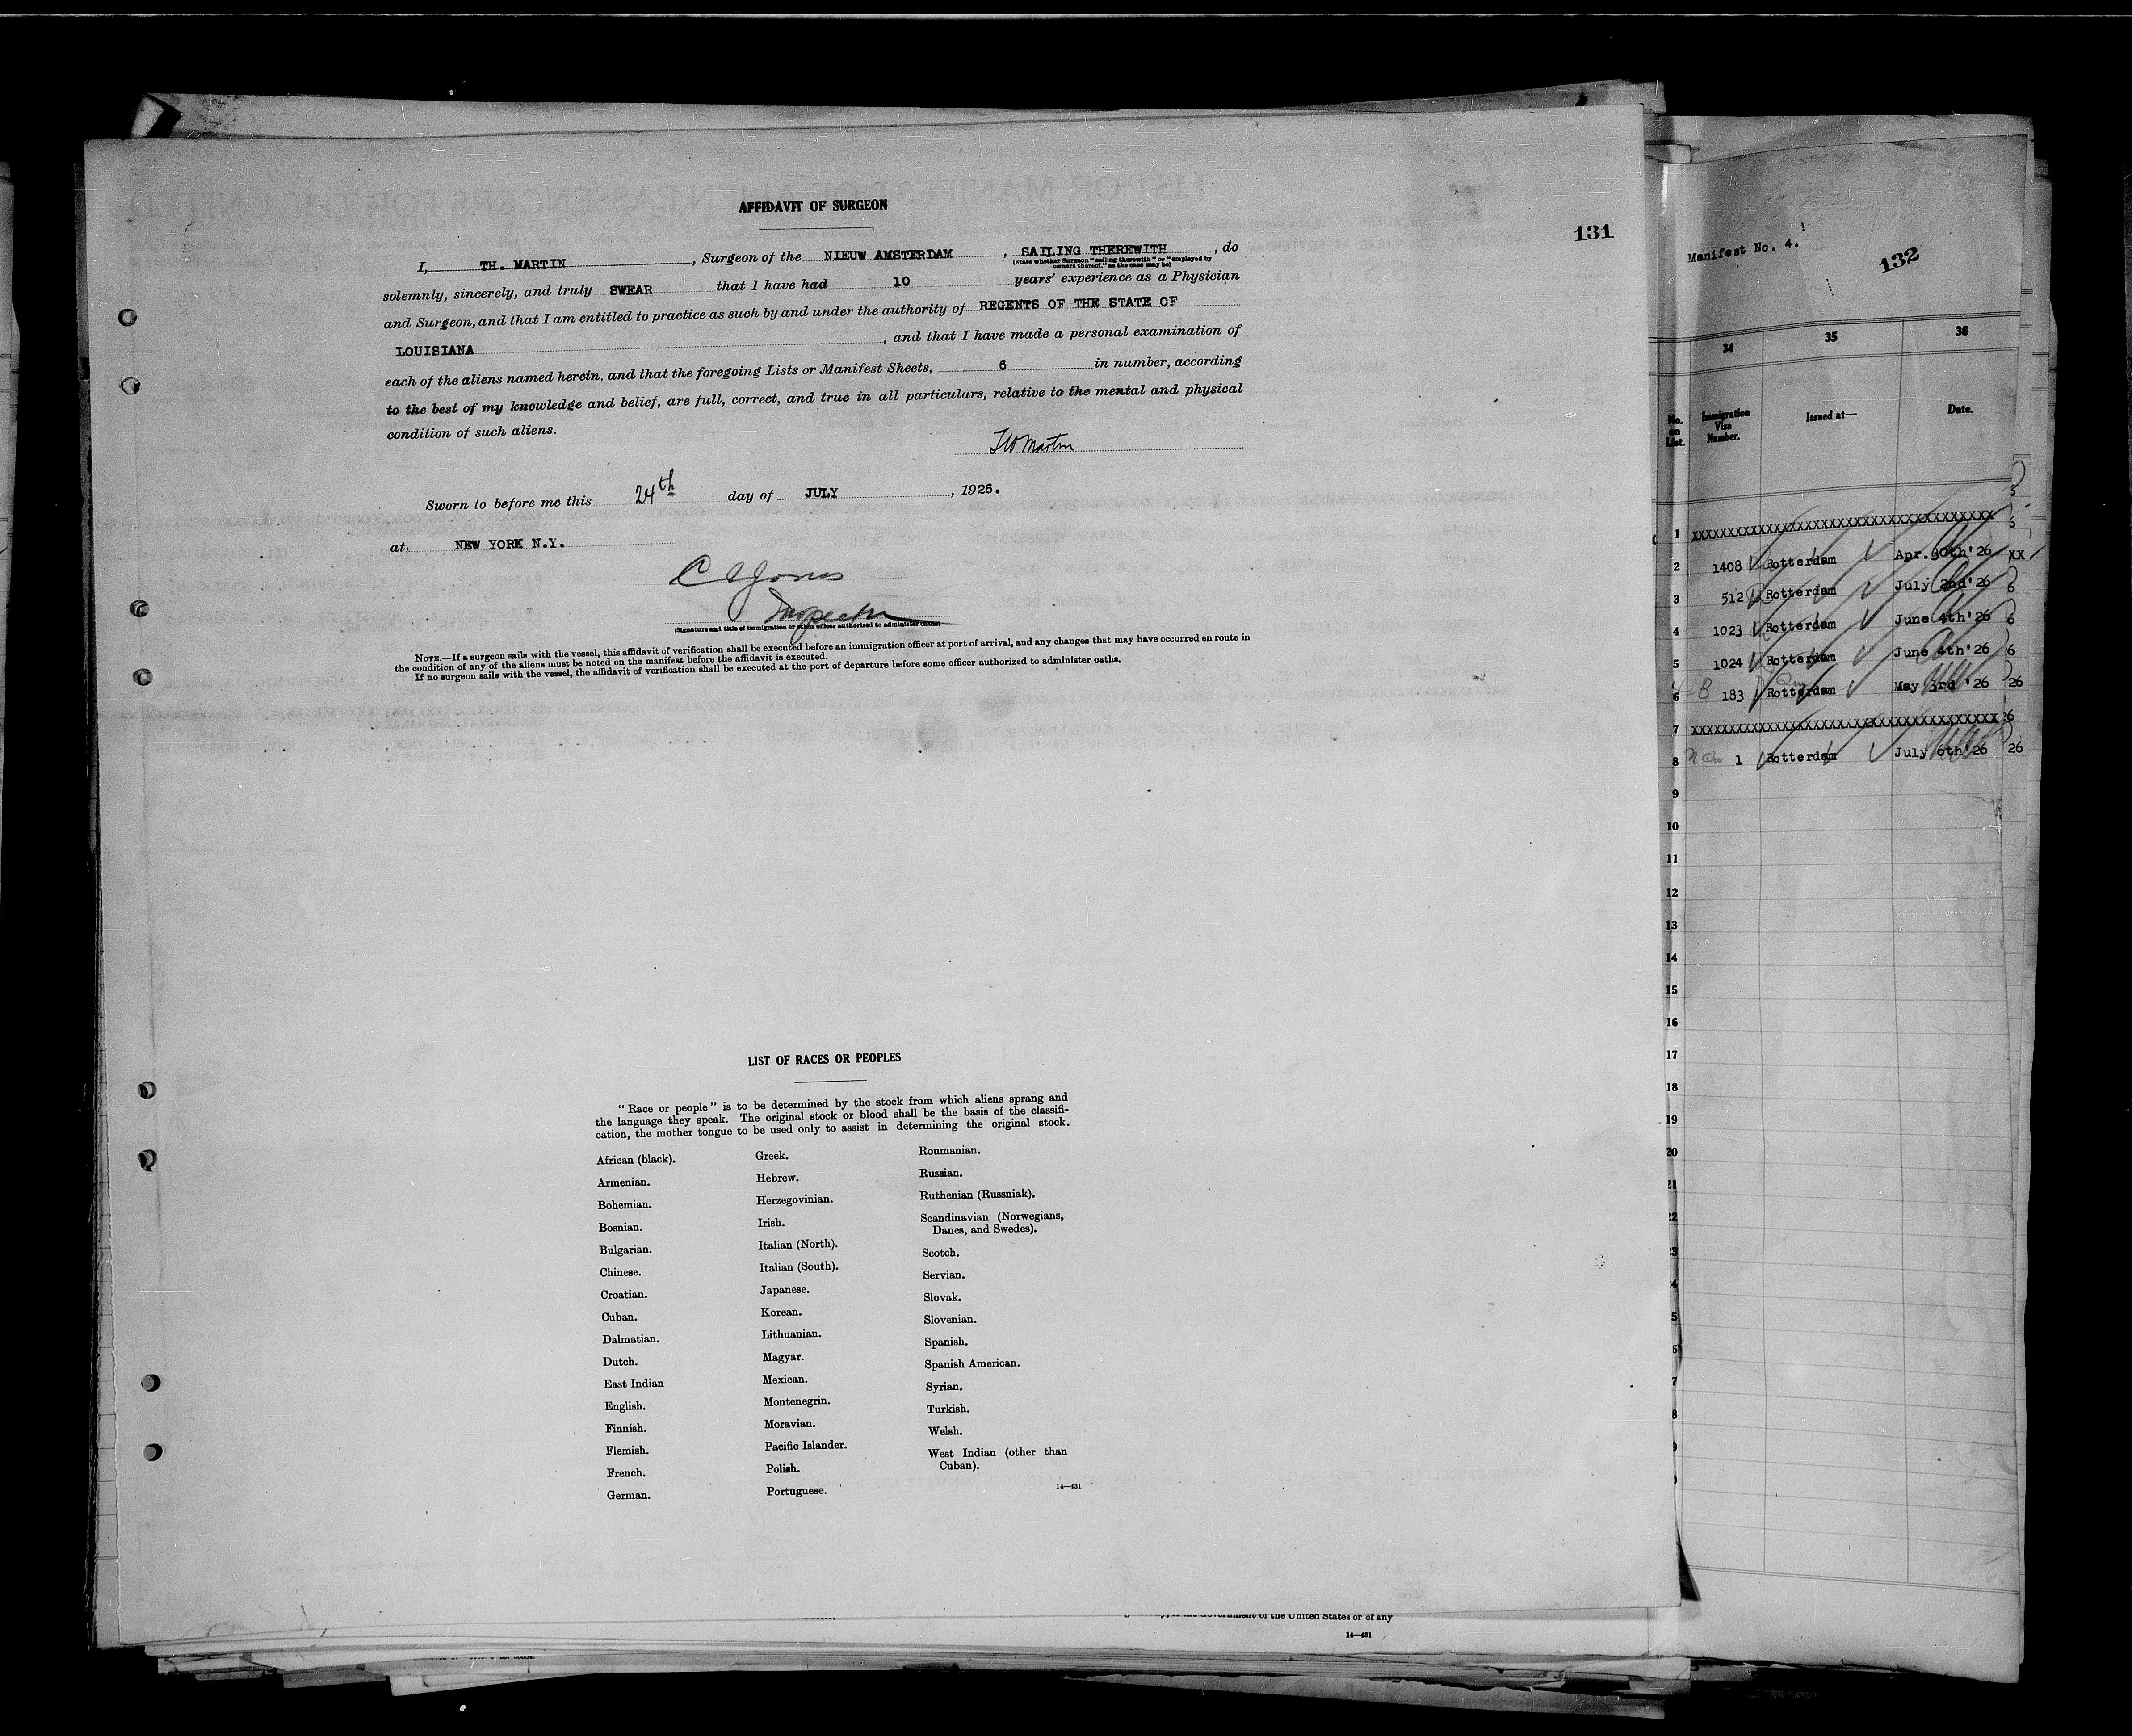 AFFIDAVIT OF SURGEON
131
I, TH. MARTIN, Surgeon of the NIEUW AMSTERDAM, SAILING THEREWITH, do
(State whether Surgeon "sailing therewith" or "employed by
owners thereof," as the case may be)
solemnly, sincerely, and truly SWEAR that I have had 10 years' experience as a Physician
and Surgeon, and that I am entitled to practice as such by and under the authority of REGENTS OF THE STATE OF
LOUISIANA, and that I have made a personal examination of
each of the aliens named herein, and that the foregoing Lists or Manifest Sheets, 6 in number, according
to the best of my knowledge and belief, are full, correct, and true in all particulars, relative to the mental and physical
condition of such aliens.
Martin
Sworn to before me this 24th day of JULY, 1926.
at NEW YORK N.Y.
Inspector
(Signature and title of immigration or other officer authorized to administer oaths)
NOTE.—If a surgeon sails with the vessel, this affidavit of verification shall be executed before an immigration officer at port of arrival, and any changes that may have occurred en route in
the condition of any of the aliens must be noted on the manifest before the affidavit is executed.
If no surgeon sails with the vessel, the affidavit of verification shall be executed at the port of departure before some officer authorized to administer oaths.
LIST OF RACES OR PEOPLES
"Race or people" is to be determined by the stock from which aliens sprang and
the language they speak. The original stock or blood shall be the basis of the classifi-
cation, the mother tongue to be used only to assist in determining the original stock.
African (black).
Armenian.
Bohemian.
Bosnian.
Bulgarian.
Chinese.
Croatian.
Cuban.
Dalmatian.
Dutch.
East Indian
English.
Finnish.
Flemish.
French.
German.
Greek.
Hebrew.
Herzegovinian.
Irish.
Italian (North).
Italian (South).
Japanese.
Korean.
Lithuanian.
Magyar.
Mexican.
Montenegrin.
Moravian.
Pacific Islander.
Polish.
Portuguese.
Roumanian.
Russian.
Ruthenian (Russniak).
Scandinavian (Norwegians,
Danes, and Swedes).
Scotch.
Servian.
Slovak.
Slovenian.
Spanish.
Spanish American.
Syrian.
Turkish.
Welsh.
West Indian (other than
Cuban).
14—431
Government of the United States or of any
14—431
Manifest No. 4.
132
34 35 36
No. on List. Immigration Visa Number. Issued at— Date.
1 xxxxxxxxxxxxxxxxxxxxxxxxxxxxxxxxxxxxx
2 1408 Rotterdam Apr. 30th'26 xx
3 512 Rotterdam July 2nd'26
4 1023 Rotterdam June 4th'26
5 1024 Rotterdam June 4th'26
6 B 183 Rotterdam May 3rd '26 26
7 xxxxxxxxxxxxxxxxxxxxxxxxxxxxxxxxxxxxx
8 1 Rotterdam July 6th'26 26
9
10
11
12
13
14
15
16
17
18
19
20
21
22